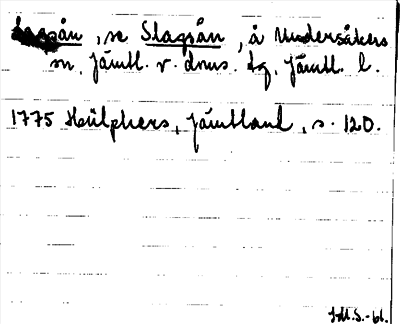 ån, se Slagsån, å Undersåkers
sn, Jämtl. v. dns. tg, Jämtl. l.
1775 Hülphers, Jämtland, s. 120.
JM.S.-61.